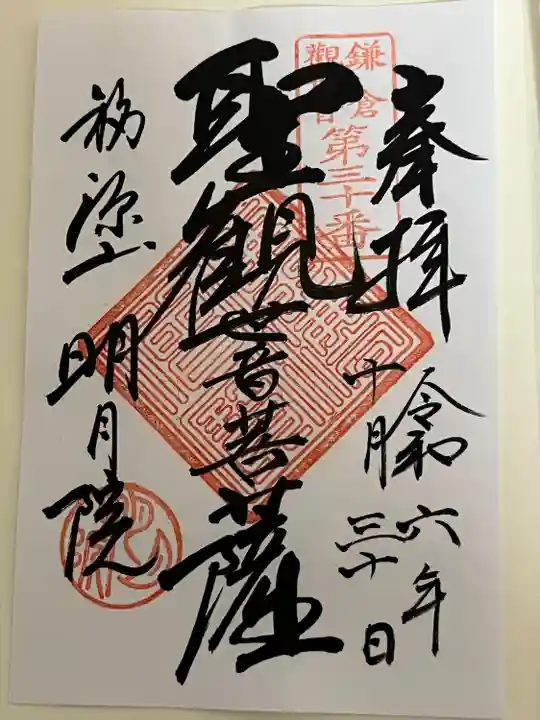 奉拝
令和六年
十月三十日
鎌倉
觀音
第三十番
聖觀世音菩薩
福源山
明月院